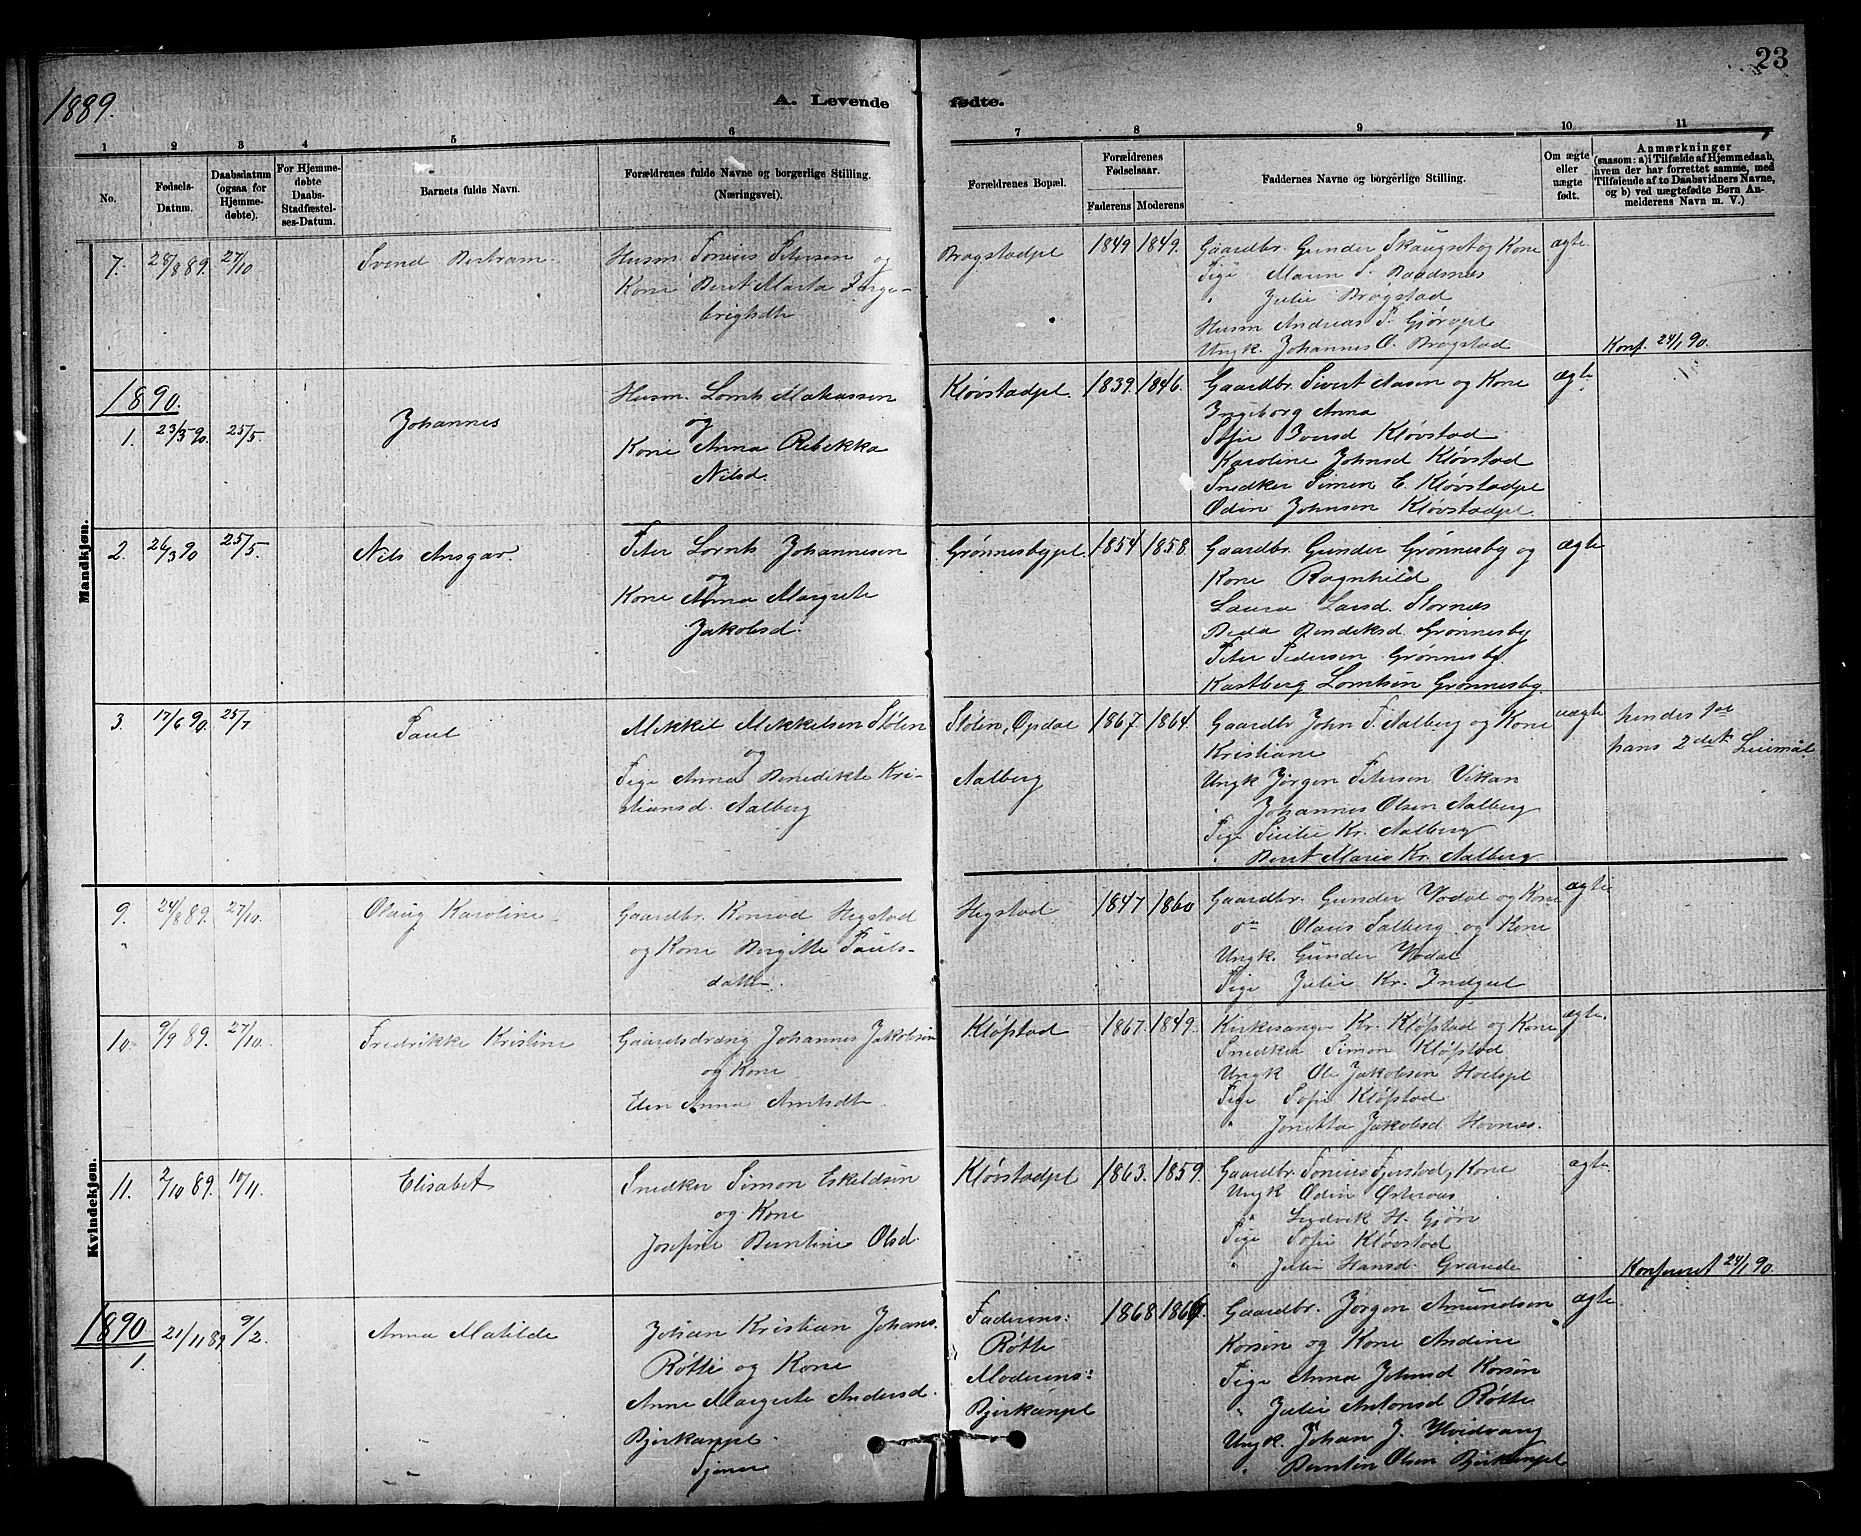 23
1889.
A. Levende fødte.
1 2 3 4 5 6 7 8 9 10 11
No.
Fødsels-Datum.
Daabsdatum (ogsaa for Hjemmedøbte).
For Hjemmedøbte Daabs-Stadfæstelses-Datum.
Barnets fulde Navn.
Forældrenes fulde Navne og borgerlige Stilling. (Næringsvei).
Forældrenes Bopæl.
Forældrenes Fødselsaar.
Faderens Moderens
Faddernes Navne og borgerlige Stilling.
Om ægte eller uægte født.
Anmærkninger
(saasom: a) i Tilfælde af Hjemmedaab, hvem der har forrettet samme, med Tilføiende af to Daabsvidners Navne, og b) ved uægtefødte Børn Anmelderens Navn m. V.)
Mandkjøn.
7. 28/8 89. 27/10 Svend Bertram
Husm. Tonius Petersen og
Kone Beret Marta Inge-
brigtsdtr
Bragstadpl 1849 1849.
Gaardbr. Gunder Skaugset og Kone
Pige Maren P. Baadsnes
" Julie Bragstad
Husm Andreas P. Gjørvpl
Ungk. Johannes O. Bragstad
ægte
Konf. 24/1 90.
1890.
1. 23/3 90. 25/5. Johannes
Husm. Lornts Matiassen
og
Kone Anna Rebekka
Nilsd.
Kløvstadpl. 1839. 1846.
Gaardbr. Sivert Aasen og Kone
Ingeborg Anna
Sofie Iversd Kløvstad
Karoline Johnsd Kløvstad
Snedker Simon E Kløvstadpl
Odin Johnsen Kløvstadpl.
ægte
2. 26/3 90 25/5. Nils Ansgar.
Peter Lornts Johannesen
og
Kone Anna Margrete
Jakobsd.
Grønnesbypl. 1854 1858.
Gaardbr. Gunder Grønnesby og
Kone Ragnhild
Laura Larsd. Stornæs
Beda Bendiksd. Grønnesby
Peter Pedersen Grønnesby.
Kastberg Lorntsen Grønnesby.
ægte
3. 17/6 90. 25/7 Paul
Mikkel Mikkelsen Stølen
og
Pige Anna Benedikte Kri-
stiansd. Aalberg
Stølen, Opdal
Aalberg
1867. 1864.
Gaardbr John P. Aalberg og Kone
Kristiane
Ungk Jørgen Petersen Vikan
" Johannes Olsen Aalberg
Pige Sirilie Kr. Aalberg
" Beret Marie Kr. Aalberg
uægte
hendes 1ste
hans 2det Leiemål.
Kvindekjøn.
9. 24/8 89. 27/10. Olaug Karoline
Gaardbr. Konrad Hegstad
og Kone Birgitte Pauls-
datter.
Hegstad 1847 1860
Gaardbr. Gunder Vodal og Kone
do Olaus Salberg og Kone
Ungk. Gunder Vodal
Pige Julie Kr. Indgul
ægte
10. 9/9 89. 27/10. Fredrikke Kristine
Gaardsdræng Johannes Jakobsen
og Kone
Elen Anna Arntsdtr.
Kløfstad 1867. 1849.
Kirkesanger Kr. Kløfstad og Kone
Snedker Simon Kløfstad
Ungk Ole Jakobsen Hoelspl
Pige Sofie Kløfstad
" Jonetta Jakobsd Hovnæs.
ægte.
11. 2/10 89. 10/11. Elisabet
Snedker Simon Eskildsen
og Kone
Josefine Berntine Olsd.
Kløvstadpl 1863. 1859.
Gaardbr. Tonius Fjerstad, Kone
Ungk Odin Østeraas
" Ludvik H. Gjørv
Pige Sofie Kløvstad
" Julie Hansd. Grande
ægte
Konfereret 24/1 90.
1890
1. 21/11 89 9/2. Anna Matilde
Johan Kristian Johans.
Røtte og Kone
Anne Margrete Andersd.
Bjerkempl.
Tjener
Faderens:
Røtte
Moderens:
Bjerkempl
1868
Gaardbr. Jørgen Amundsen
Korsen og Kone Andine
Pige Anna Johnsd Korsøn
" Julie Antonsd Røtte
Ungk. Johan J. Hvidvang
" Berntin Olsen Bjerkempl
ægte